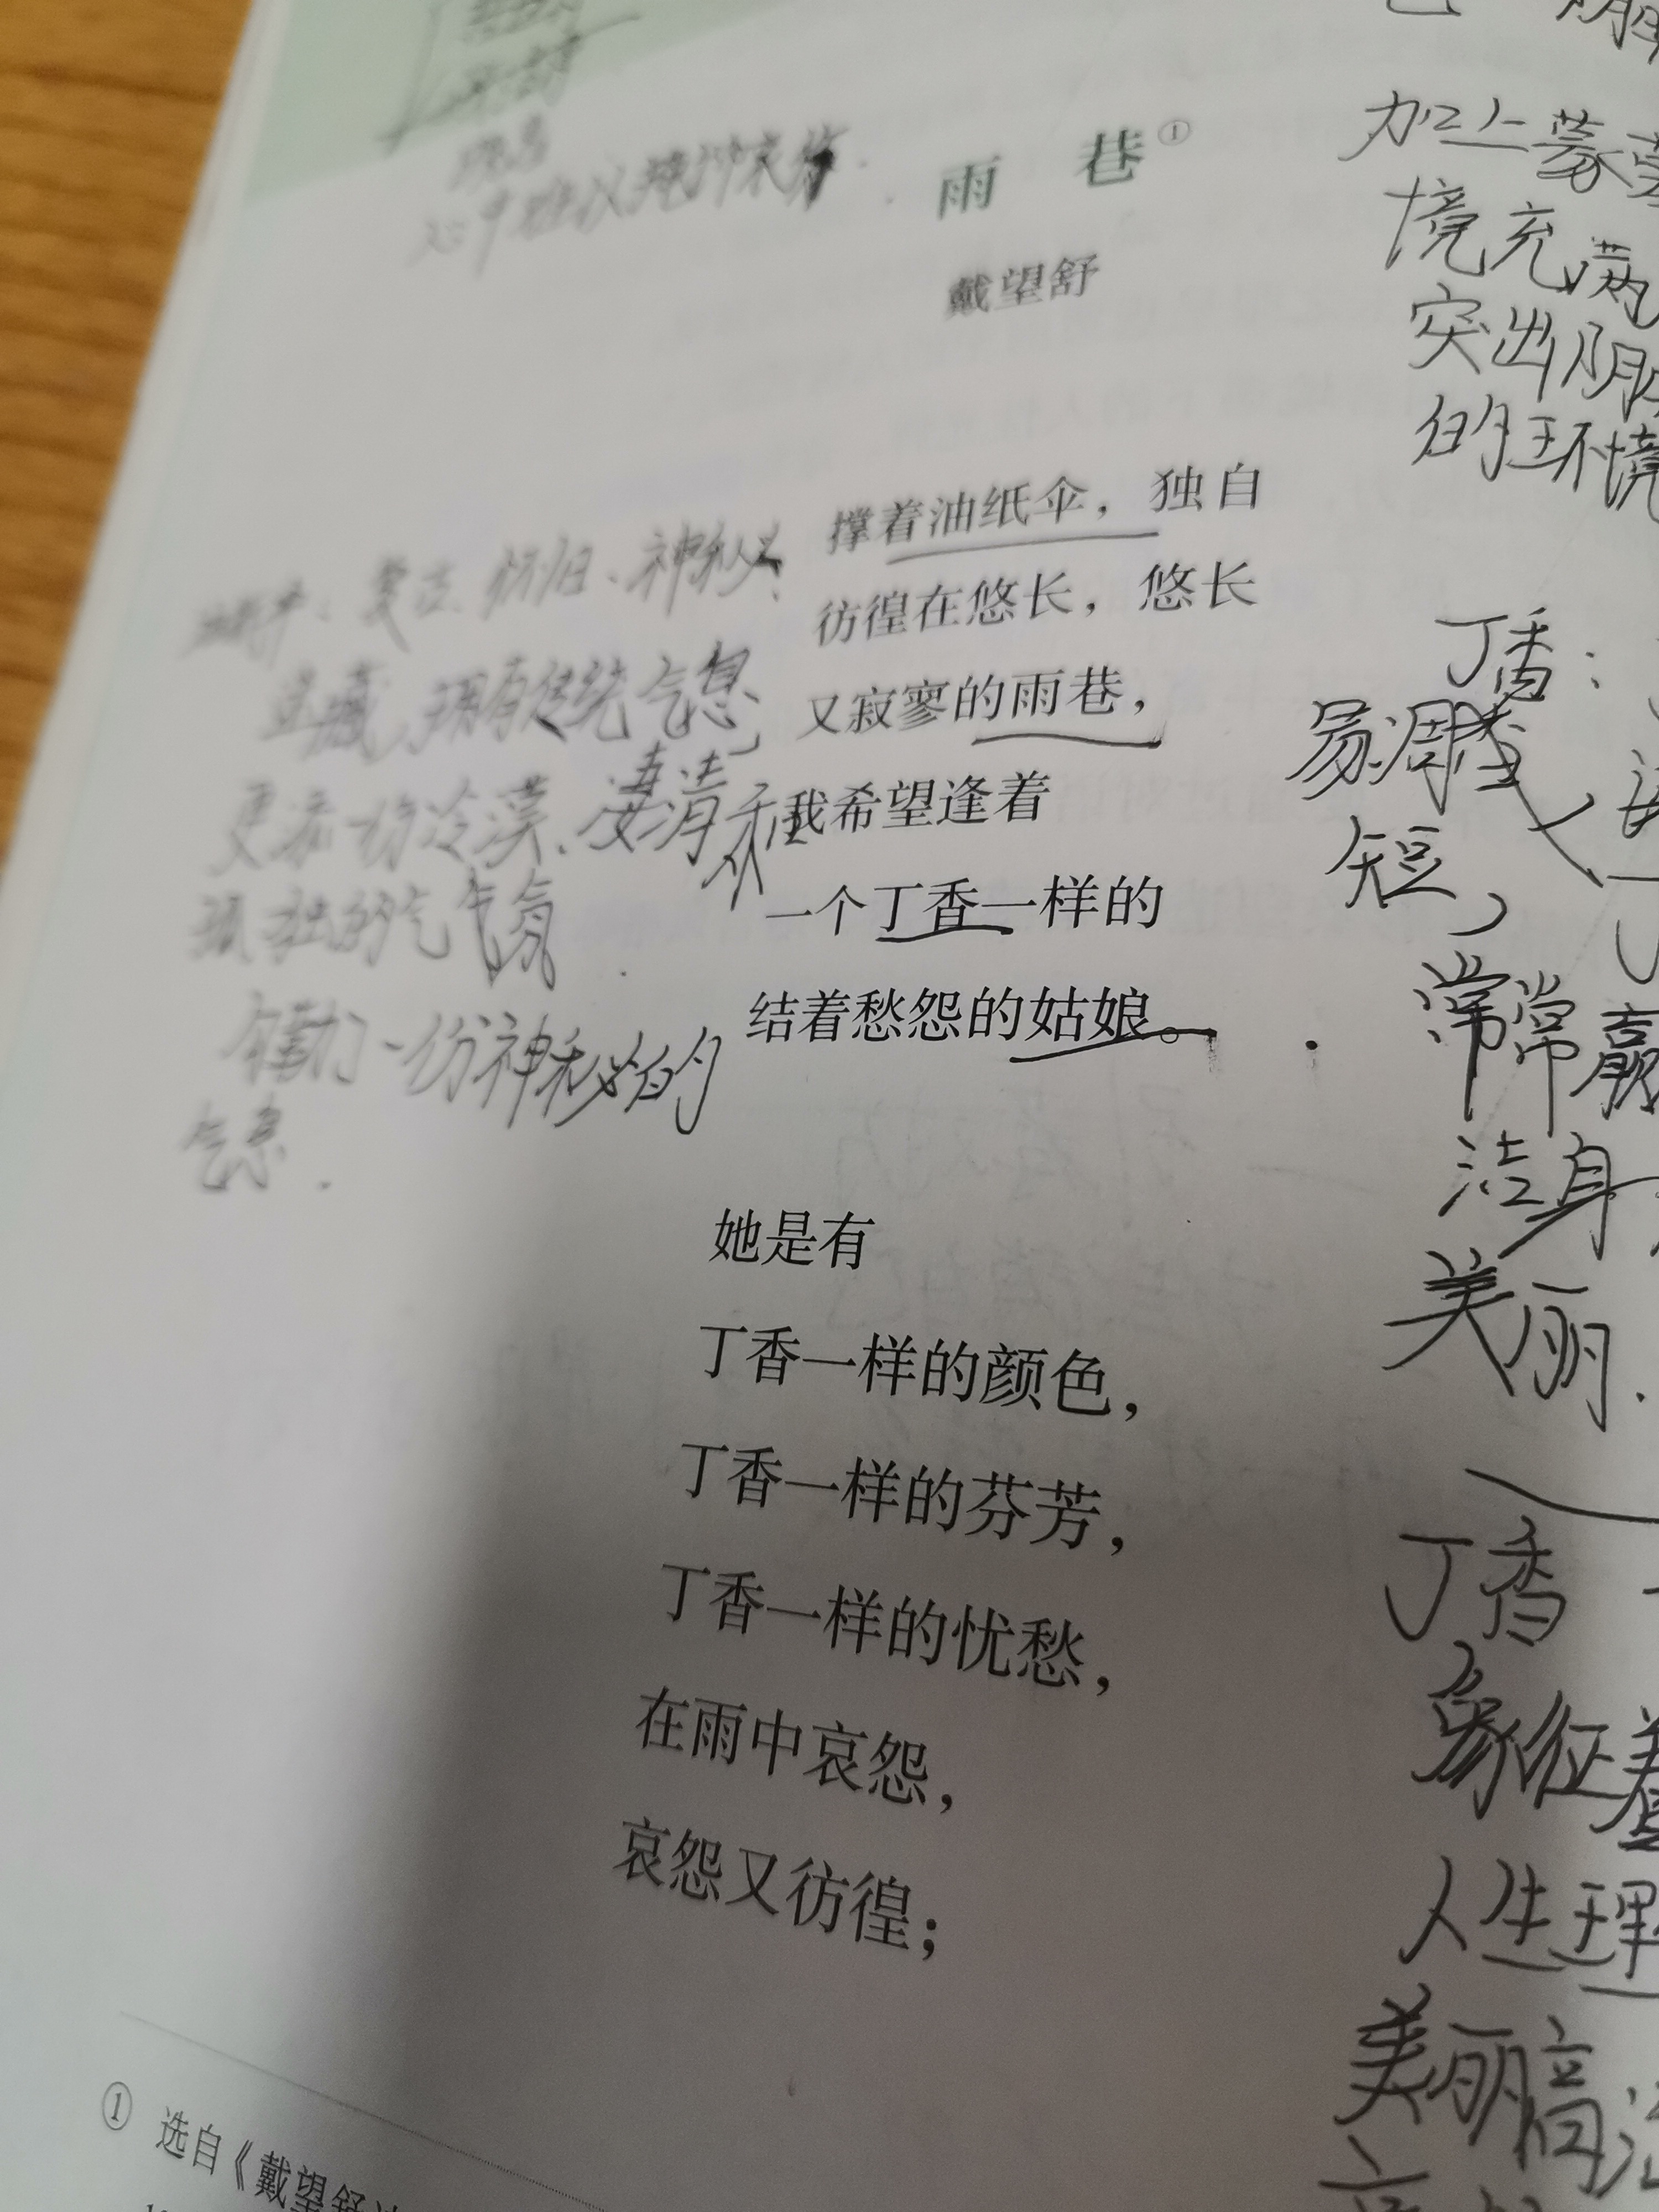 雨 巷①
戴望舒
撑着油纸伞，独自
彷徨在悠长，悠长
又寂寥的雨巷，
我希望逢着
一个丁香一样的
结着愁怨的姑娘。
她是有
丁香一样的颜色，
丁香一样的芬芳，
丁香一样的忧愁，
在雨中哀怨，
哀怨又彷徨；
① 选自《戴望舒
复古、怀旧、神秘、
具有传统气息，
更添一份冷漠、凄清和
孤独的气氛
一份神秘的
气息.
加上蒙
境充满
突出阴
的环境
丁香：
易凋
短，
常常
洁身
美丽.
丁香
象征着
人生理
美丽高洁